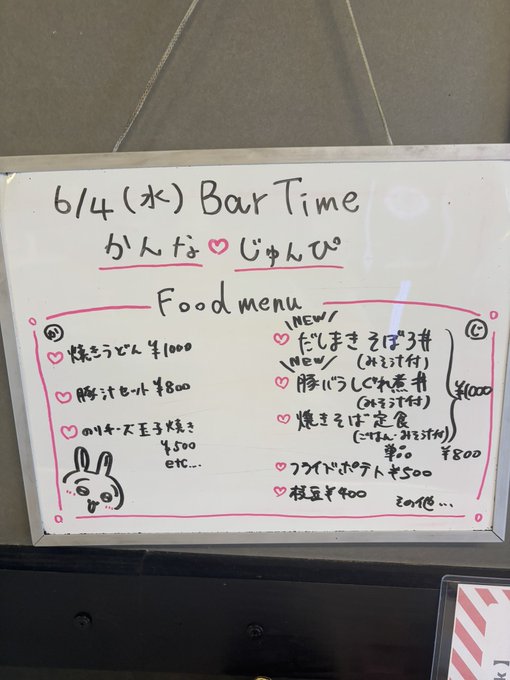 6/4(水) Bar Time
かんな♡じゅんぴ
Food menu
か
♡焼きうどん ¥1000
♡豚汁セット ¥800
♡のりチーズ玉子焼き
¥500
etc...
じ
\NEW/
♡だしまきそぼろ丼
(みそ汁付)
\New/
♡豚バラしぐれ煮丼
(みそ汁付)
♡焼きそば定食
(ごはん・みそ汁付)
¥1000
単品 ¥800
♡フライドポテト ¥500
♡枝豆 ¥400
その他...